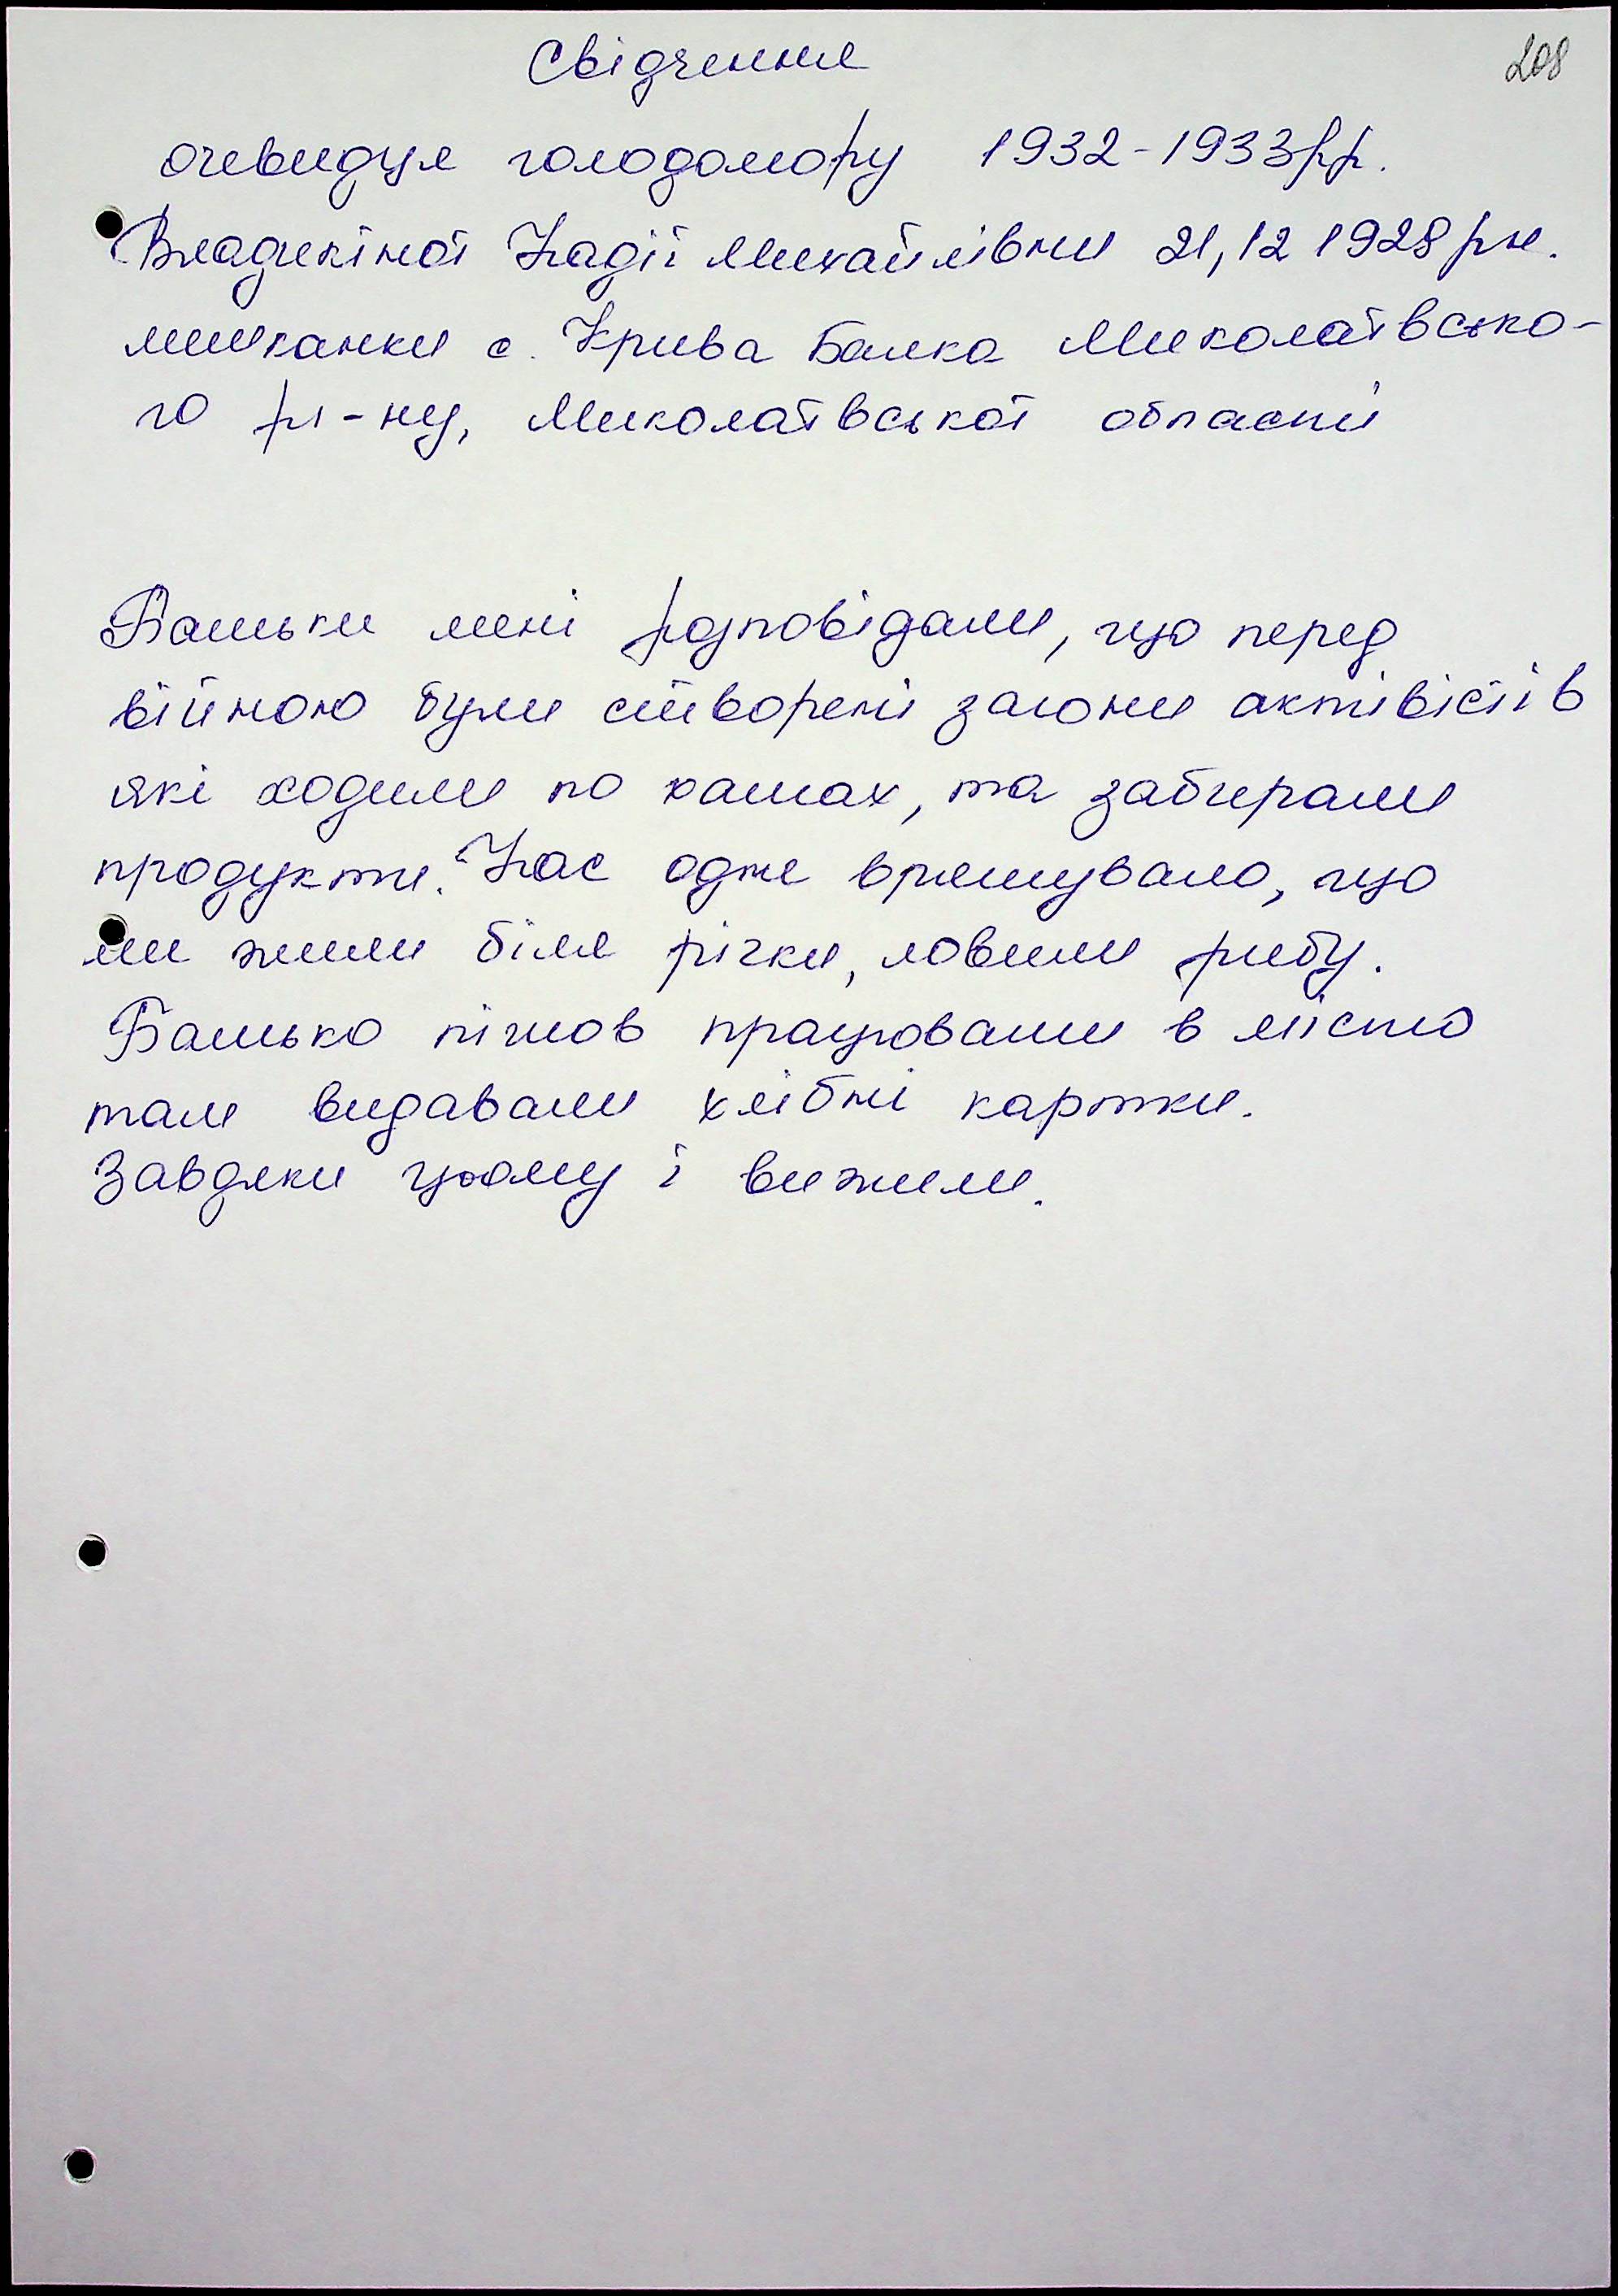 208
Свідчення
очевидця голодомору 1932-1933рр.
Владикіної Надії Михайлівни 21,12 1928 рн.
мешканки с. Крива Балка Миколаївсько-
го р-ну, Миколаївської області
Батьки мені розповідали, що перед
війною були створені загони активістів
які ходили по хатах, та забирали
продукти. Нас одне врятувало, що
ми жили біля річки, ловили рибу.
Батько пішов працювати в місто
там видавали хлібні картки.
Завдяки цьому і вижили.